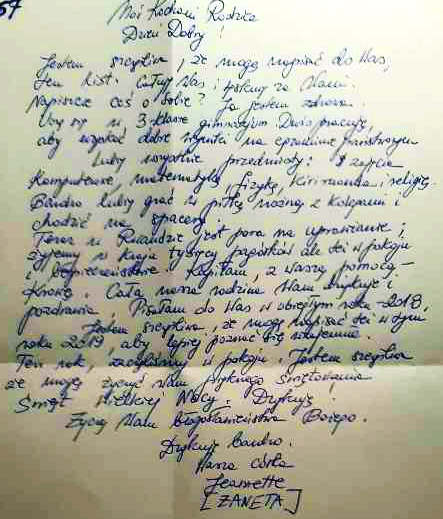 57
Moi Kochani Rodzice
Dzień Dobry!
Jestem szczęśliwa, że mogę napisać do Was,
ten list. Całuję Was i tęsknię za Wami.
Napiszcie coś o sobie? Ja jestem zdrowa.
Uczę się w 3 klasie gimnazjum. Dużo pracuję,
aby uzyskać dobre wyniki na egzaminie państwowym
Lubię wszystkie przedmioty: zajęcia
komputerowe, matematykę, fizykę, kinirwanda i religię.
Bardzo lubię grać w piłkę nożną z kolegami i
chodzić na spacery.
Teraz w Rwandzie jest pora na uprawianie;
żyjemy w kraju tysięcy pagórków ale też w pokoju
i bezpieczeństwie. Kupiłam, z waszą pomocą -
Krowę. Cała nasza rodzina Wam dziękuje i
pozdrawia. Pisałam do Was w ubiegłym roku 2018,
Jestem szczęśliwa, że mogę napisać też w tym
roku 2019, aby lepiej poznać się wzajemnie.
Ten rok, zaczęliśmy w pokoju. Jestem szczęśliwa
że mogę życzyć Wam pięknego świętowania
Świąt Wielkiej Nocy. Dziękuję!
Życzę Wam błogosławieństwa Bożego.
Dziękuję bardzo.
Wasza córka
Jeannette
[ŻANETA]